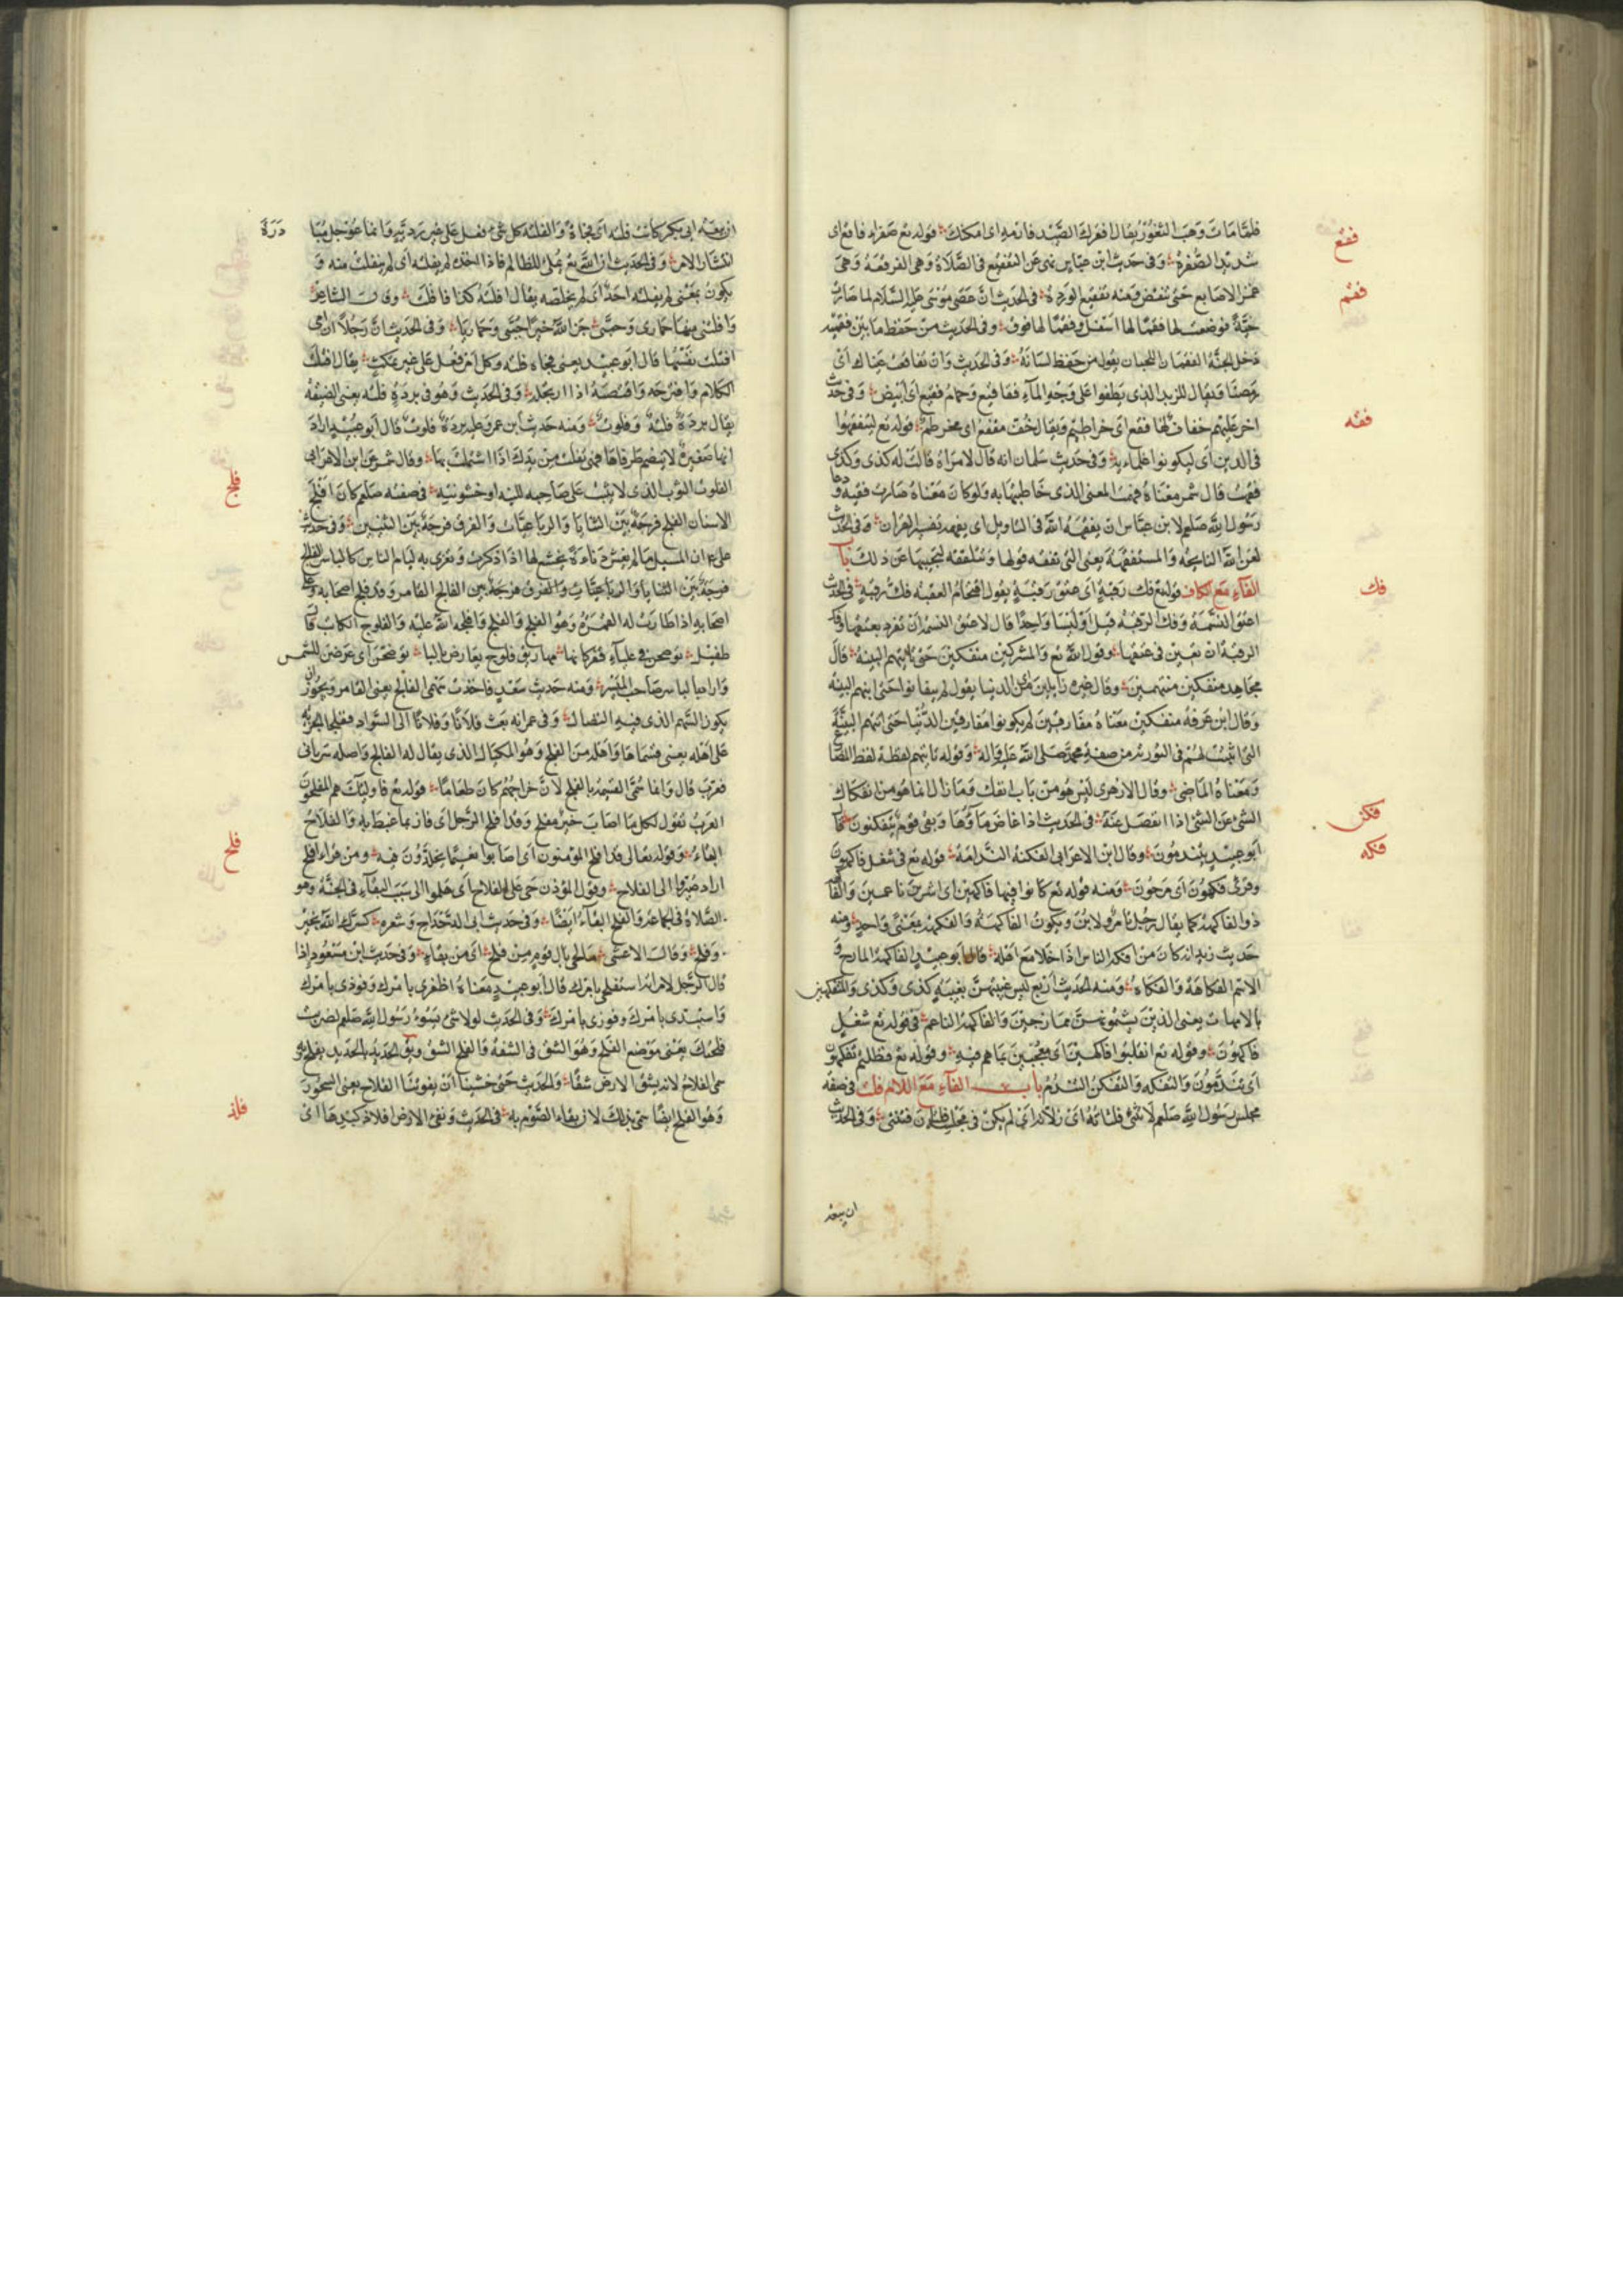 فلما مات وهب التغور يقال افقرك الصيد فارمه اى امكنك قوله تع صفراء فاقع اى
شديد الصفرة وفى حديث ابن عباس نهى عن التفقيع فى الصلاة وهى الفرقعة وهى
غمز الاصابع حتى تنقض ومنه تفقيع الوردة فى الحديث ان عصى موسى عليه السلام لما صارت
حية فوضعت لها فقما لها اسفل وفقما لها فوق وفى الحديث من حفظ ما بين فقميه
دخل الجنة الفقمان اللحيان يقول من حفظ لسانه وفى الحديث وان تفاقمت عيناك اى
رمصتا ويقال للزبد الذى يطفوا على وجه المآء فقاقيع وحمام فقيع اى ابيض وفى حديث
اخر عليهم خفاف لها فقع اى خراطيم ويقال خف مفقع اى مخرطم قوله تع ليتفقهوا
فى الدين اى ليكونوا علماء به وفى حديث سلمان انه قال لامراة قالت له كذى وكذى
فقهت قال شمر معناه فهمت المعنى الذى خاطبتها به ولو كان معناه صارت فقيهة ودعا
رسول الله صلعم لابن عباس ان يفقهه الله فى التاويل اى يفهمه تفسير القران وفى الحديث
لعن الله النايحة والمستفقهة يعنى التى تفقه قولها وتتلقفه لتجيبها عن ذلك باب
الفآء مع الكاف قوله تع فك رقبة اى عتق رقبة يقول اقتحام العقبة فك رقبة فى الحديث
اعتق النسمة وفك الرقبة قيل اوليسا واحدا قال لا عتق النسمة ان تفرد بعتقها وفك
الرقبة ان تعين فى عتقها وقول الله تع والمشركين منفكين حتى تاتيهم البينة قال
مجاهد منفكين منتهين وقال غيره زايلين من الدنيا يقول لم يبقا نوا حتى اتتهم البينة
وقال ابن عرفة منفكين معناه مفارقين لم يكونوا مفارقين الدنيا حتى اتتهم البينة
التى اثبتت لهم فى التورية من صفة محمد صلى الله عليه واله وقوله تاتيهم لفظه لفظ المضارع
ومعناه الماضى وقال الازهرى ليس هو من باب انفك وما زال انما هو من انفكاك
الشئ عن الشئ اذا انفصل عنه فى الحديث اذا غاض مآؤها وبقى قوم يتفكنون قال
ابو عبيد يتندمون وقال ابن الاعرابى الفكنة الندامة قوله تع فى شغل فاكهون
وقرئ فكهون اى مرحون ومنه قوله تع كانوا فيها فاكهين اى اشرين ناعمين والفاكه
ذو الفاكهة كما يقال رجل تامر ولابن ويكون الفاكهة والفكه بمعنى واحد ومنه
حديث زيد انه كان من افكه الناس اذا خلا مع اهله قال ابو عبيد الفاكه المازح و
الاسم الفكاهة والفكاه ومنه الحديث اربع ليس غيبتهن بغيبة كذى وكذى والمتفكهين
بالامهات يعنى الذين يشتمونهن ممازحين والفاكه الناعم فى قوله تع شغل
فاكهون وقوله تع انقلبوا فاكهين اى معجبين بما هم فيه وقوله تع فظلتم تفكهون
اى تندمون والتفكه والتفكن التندم باب الفآء مع اللام فلت فى صفة
مجلس رسول الله صلعم لا تنثى فلتاته اى زلاته اى لم يكن فى مجلسه فلتات فتنثى وفى الحديث
ان بيعة
فقع
فقم
فقه
فك
فكن
فكه
ان بيعة ابى بكر كانت فلتة اى فجاة والفلتة كل شئ فعل على غير روية وانما عوجل بها مبادرة
انتشار الامر وفى الحديث ان الله تع يملى للظالم فاذا اخذه لم يفلته اى لم ينفلت منه و
يكون بمعنى لم يفلته احد اى لم يخلصه يقال افلته كذا فافلت وقال الشاعر
وافلتنى منها حمارى وجبتى جزا الله خيرا جبتى وحماريا وفى الحديث ان رجلا ان امى
افتلتت نفسها قال ابو عبيد يعنى فجاءة وكل امر فعل على غير تمكث يقال افتلت
الكلام واقترحه واقتضبه اذا ارتجله وفى الحديث وهو فى بردة فلتة يعنى الضيقة
يقال بردة فلتة وفلوت ومنه حديث ابن عمر وعليه بردة فلوت قال ابو عبيد اراد
انها صغيرة لا ينضم طرفاها فهى تفلت من يدك اذا اشتملت بها وقال شمر عن ابن الاعرابى
الفلوت الثوب الذى لا يثبت على صاحبه للينه او خشونته فى صفته صلعم كان افلج
الاسنان الفلج فرجة بين الثنايا والرباعيات والفرق فرجة بين الثنيتين وفى حديث
على ان المسلم ما لم يغش دناءة يخشع لها اذا ذكرت وتغرى به ليام الناس كالياسر الفالج
فرجة بين الثنايا والرباعيات والفرق فرجة بين الفالج القامر وقد فلج اصحابه وعلى
اصحابه اذا طارت له العمرة وهو الفلج والفلج وافلجه الله عليه والفلوج الكاتب قال
طفيل توضحن فى علياء قفر كانها مهاريق فلوج يعارض تاليا توضحن اى عرضن للشمس
واراد بالياسر صاحب الميسر ومنه حديث سعد فاخذت سهمى الفالج يعنى القامر ويجوز ان
يكون السهم الذى فيه النضال وفى عمر انه بعث فلانا وفلانا الى السواد ففلجا الجزية
على اهله يعنى قسماها واصله من الفلج وهو المكيال الذى يقال له الفالج واصله سريانى
فعرب قال وانما سمى القسمة بالفلج لان خراجهم كان طعاما قوله تع فاوليك هم المفلحون
العرب تقول لكل ما اصاب خير مفلح وقد افلح الرجل اى فاز بما غبط به والفلاح
البقاء وقوله تعالى قد افلح المؤمنون اى اصابوا نعيما يخلدون فيه ومن قراء افلح
اراد صيروا الى الفلاح وقول المؤذن حى على الفلاح اى هلموا الى سبب البقاء فى الجنة وهو
الصلاة فى الجماعة والفلح البقاء ايضا وفى حديث ابى الدحداح وشعره بشرك الله بخير
وفلح وقال الاعشى ما لحى يال قوم من فلح اى من بقاء وفى حديث ابن مسعود اذا
قال الرجل لامراته استفلحى بامرك قال ابو عبيد معناه اظفرى بامرك وفوزى بامرك
واستبدى بامرك وفوزى بامرك وفى الحديث لولا شئ يسوء رسول الله صلعم لضربت
فلحتك يعنى موضع الفلح وهو الشق فى الشفة والفلح الشق ويق الحديد بالحديد يفلح وبه
سمى الفلاح لانه يشق الارض شقا والحديث حتى خشينا ان يفوتنا الفلاح يعنى السحور
وهو الفلح ايضا سمى بذلك لان بقاء الصوم به فى الحديث وتقئ الارض افلاذ كبدها اى
فلج
فلح
فلذ